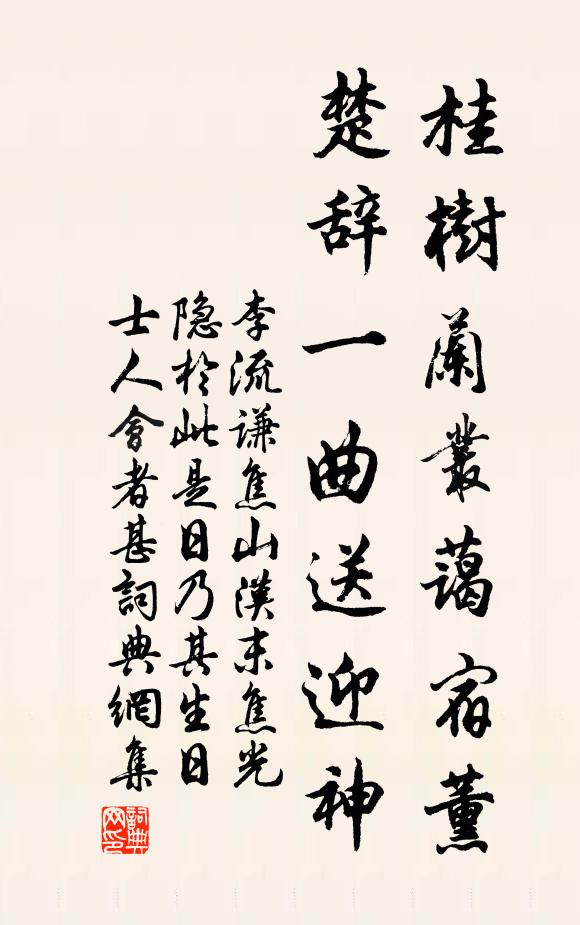 桂樹蘭叢藹宿薰
楚辞一曲送迎神
李流謙焦山漢末焦光
隐於此是日乃其生日
士人會者甚詞典網集
詞典網印